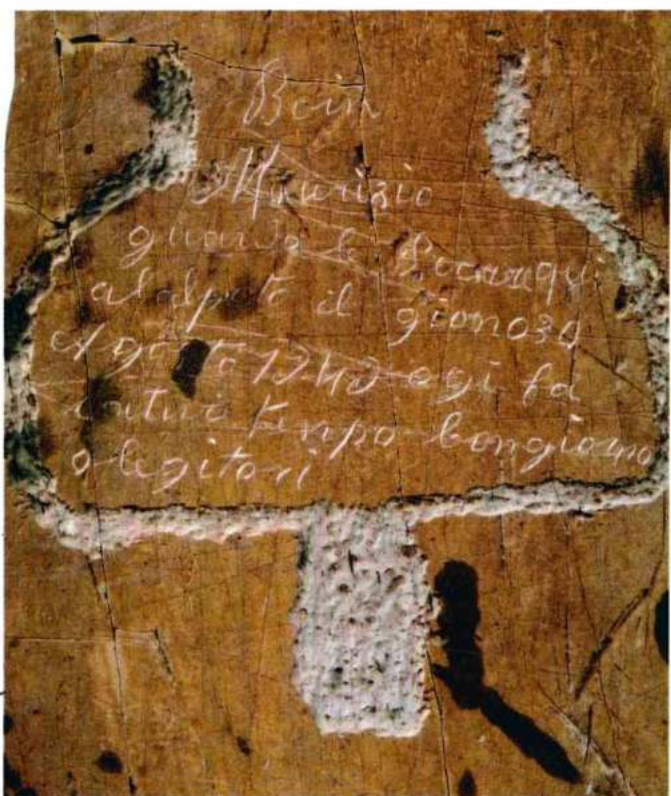 Boin
Maurizio
guardo le Pecore qui
al alpeto il giono 30
Agosto 1942 ogi fa
catuvi tenpo bongiorno
o legitori